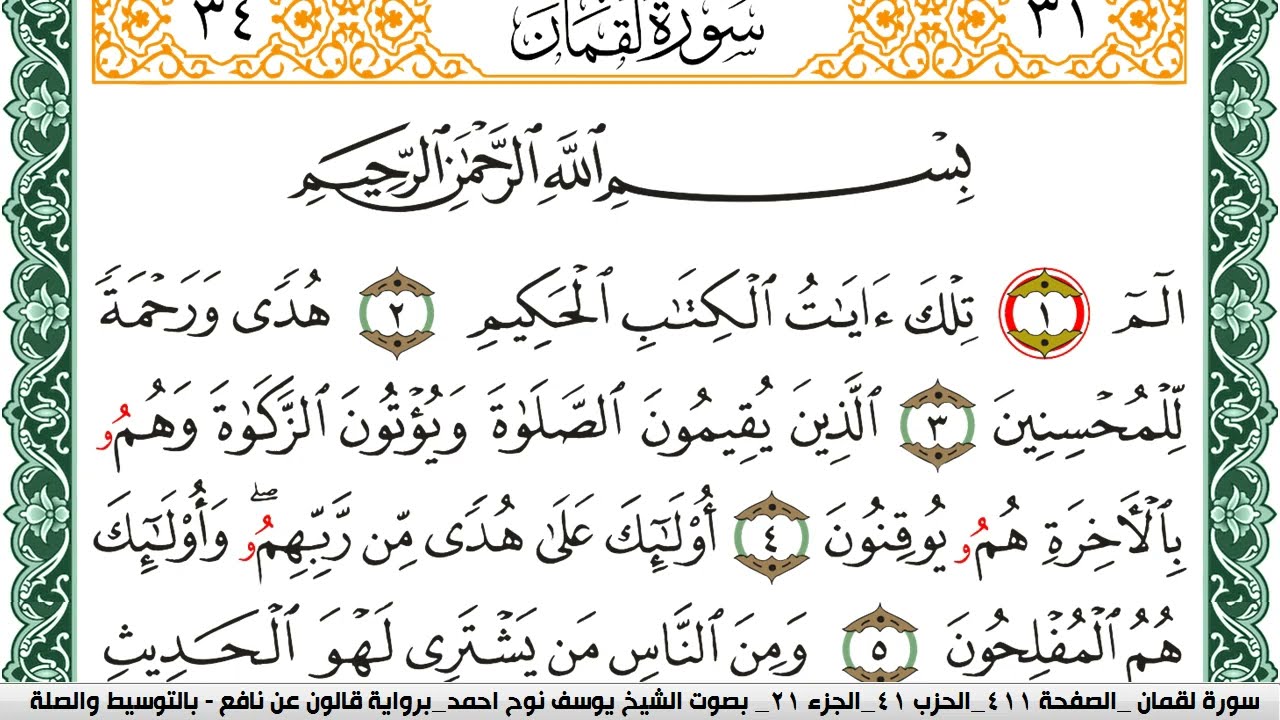 ٣١ سورة لقمان ٣٤
بِسْمِ ٱللَّهِ ٱلرَّحْمَٰنِ ٱلرَّحِيمِ
الٓمٓ ١ تِلْكَ ءَايَٰتُ ٱلْكِتَٰبِ ٱلْحَكِيمِ ٢ هُدًى وَرَحْمَةً
لِّلْمُحْسِنِينَ ٣ ٱلَّذِينَ يُقِيمُونَ ٱلصَّلَوٰةَ وَيُؤْتُونَ ٱلزَّكَوٰةَ وَهُمُو
بِٱلْأَخِرَةِ هُمُو يُوقِنُونَ ٤ أُوْلَٰٓئِكَ عَلَىٰ هُدًى مِّن رَّبِّهِمُو ۖ وَأُوْلَٰٓئِكَ
هُمُ ٱلْمُفْلِحُونَ ٥ وَمِنَ ٱلنَّاسِ مَن يَشْتَرِى لَهْوَ ٱلْحَدِيثِ
سورة لقمان _الصفحة ٤١١_الحزب ٤١_الجزء ٢١_ بصوت الشيخ يوسف نوح احمد_برواية قالون عن نافع - بالتوسيط والصلة